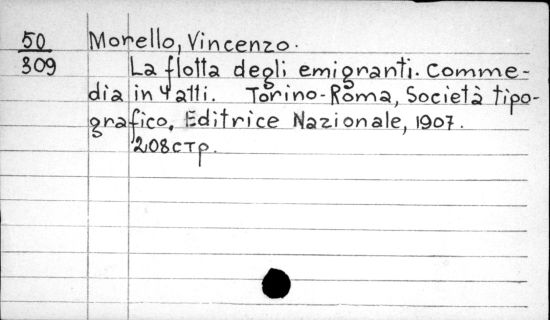 50 Morello, Vincenzo.
309 La flotta degli emigranti. Comme-
dia in 4 atti. Torino-Roma, Società tipo-
grafico, Editrice Nazionale, 1907.
208стр.